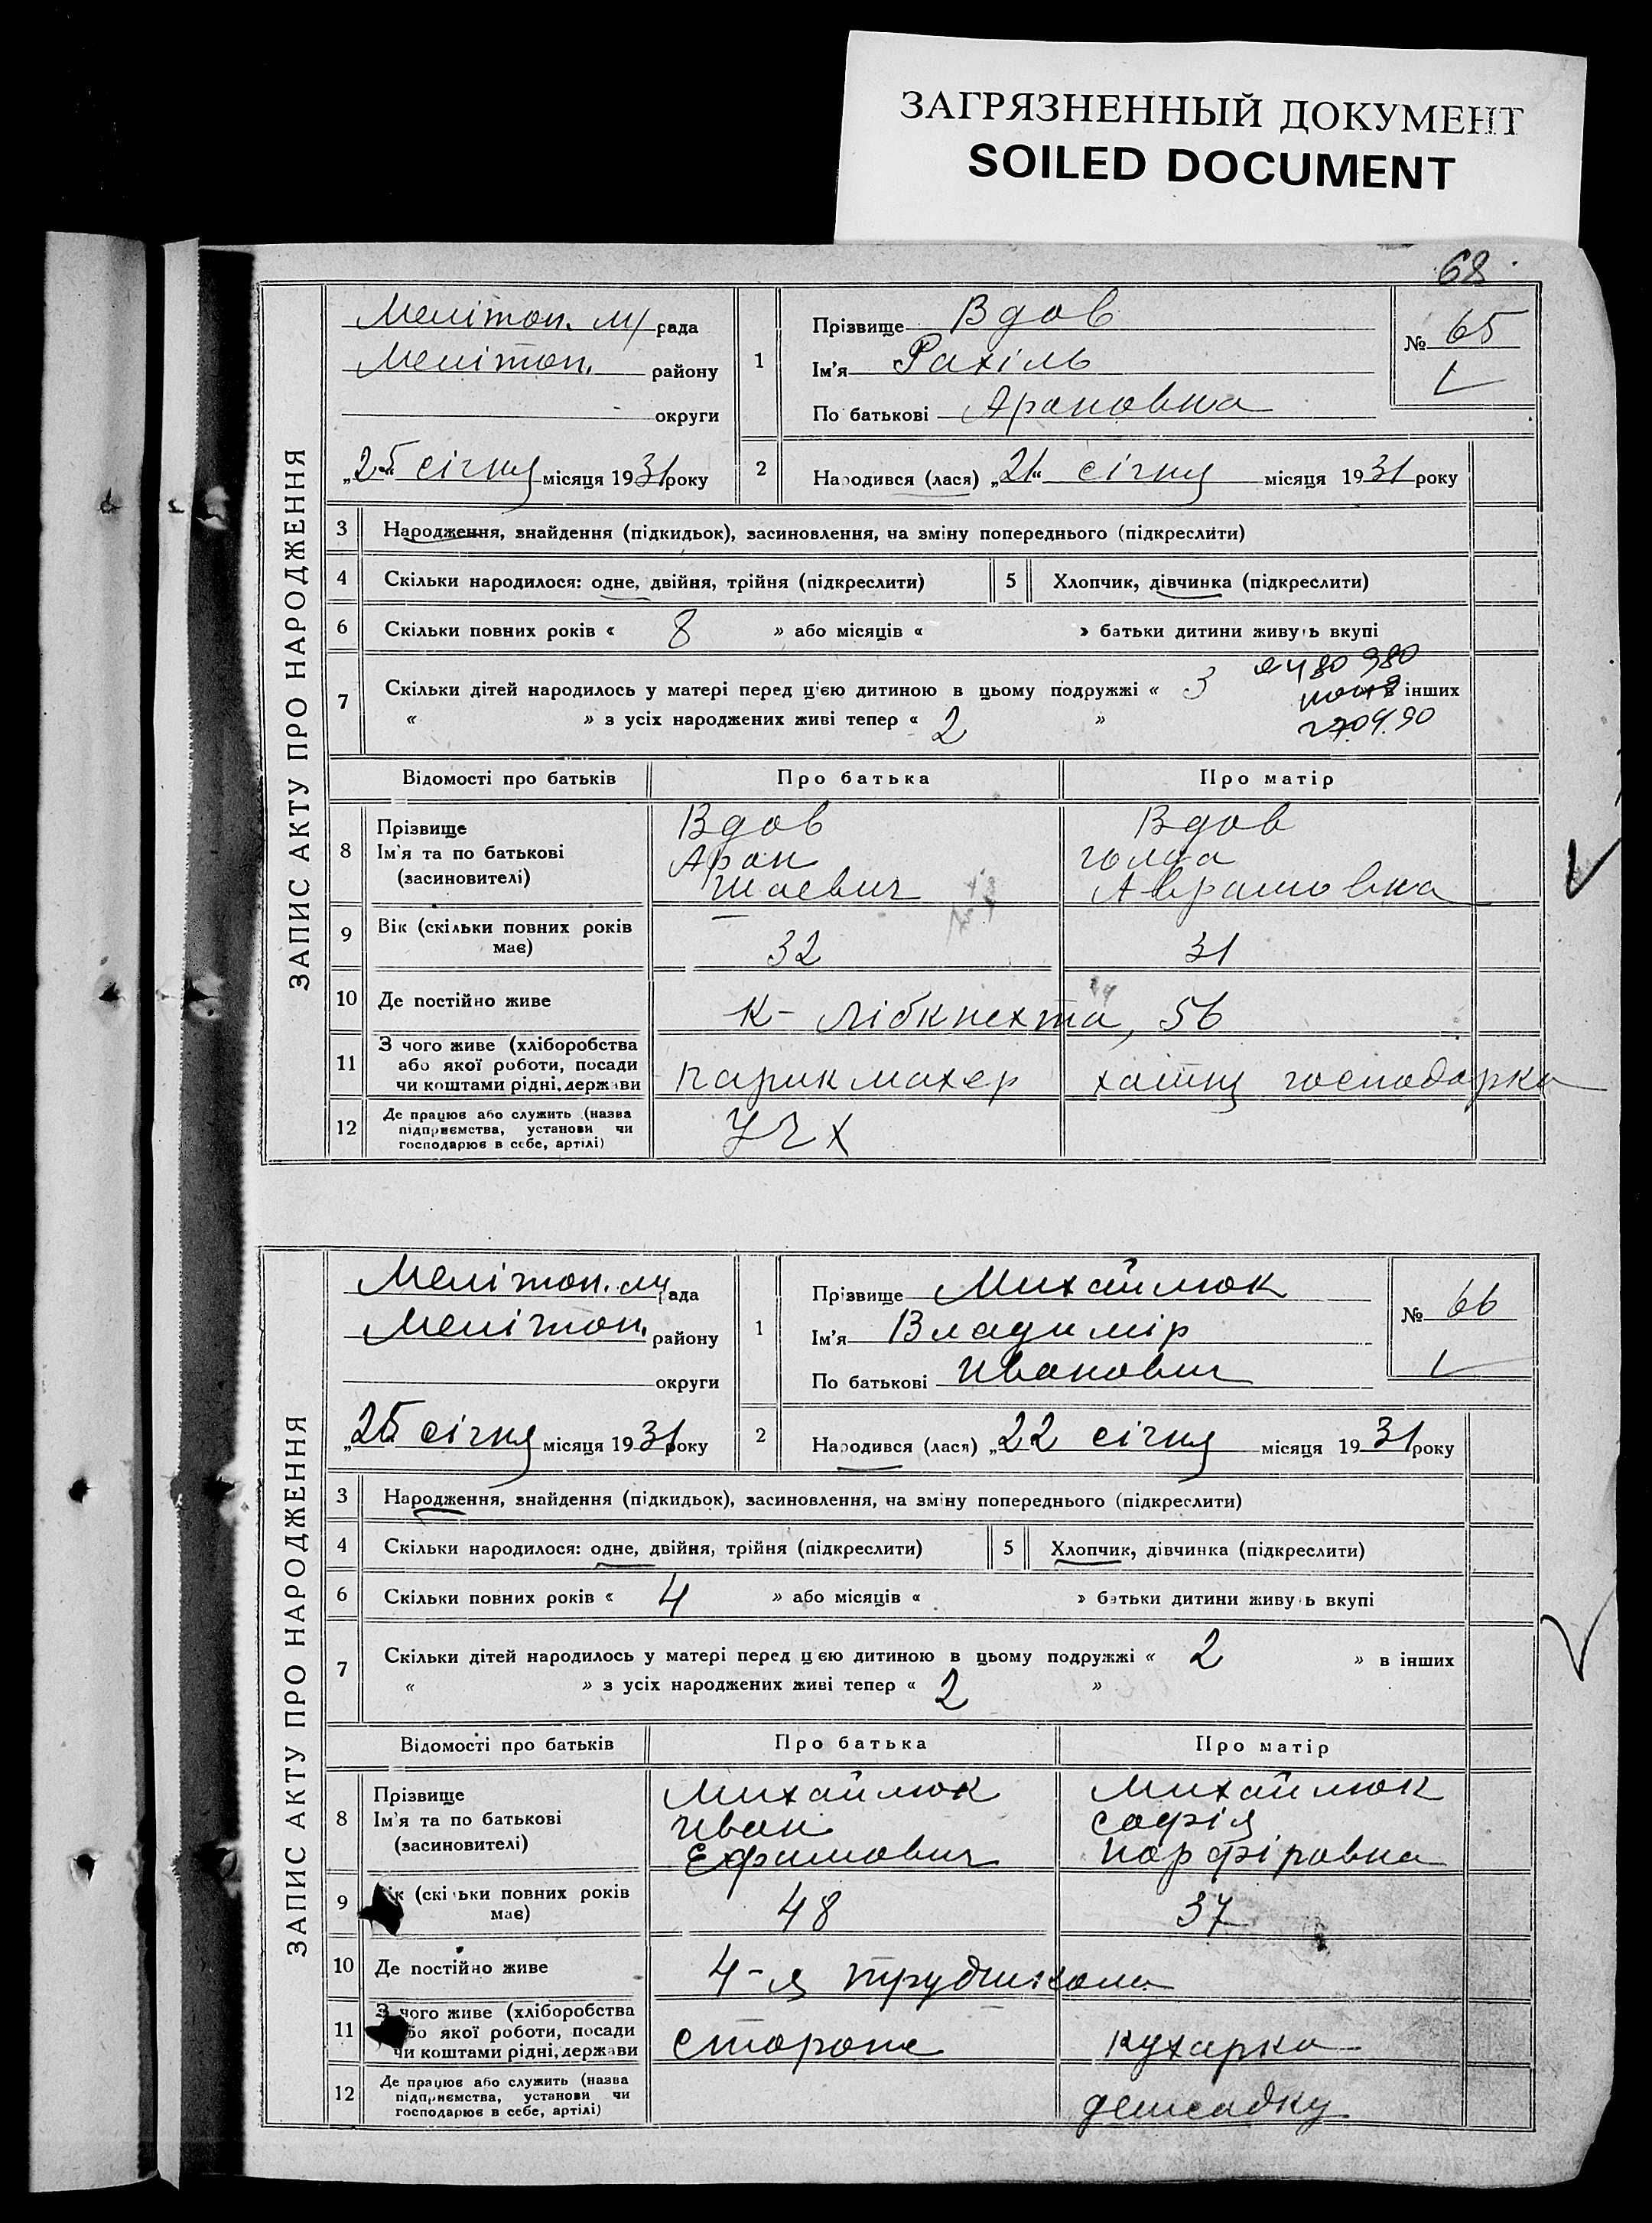 ЗАГРЯЗНЕННЫЙ ДОКУМЕНТ
SOILED DOCUMENT
68
ЗАПИС АКТУ ПРО НАРОДЖЕННЯ
Мелітоп. м/ рада
Мелітоп. району
округи
„25“ січня місяця 1931 року
1
Прізвище Вдов
Ім'я Рахіль
По батькові Ароновна
№ 65
2 Народився (лася) „21“ січня місяця 1931 року
3 Народження, знайдення (підкидьок), засиновлення, на зміну попереднього (підкреслити)
4 Скільки народилося: одне, двійня, трійня (підкреслити) 5 Хлопчик, дівчинка (підкреслити)
6 Скільки повних років « 8 » або місяців « » батьки дитини живуть вкупі
7 Скільки дітей народилось у матері перед цією дитиною в цьому подружжі « 3 в інших
« » з усіх народжених живі тепер « 2 »
Відомості про батьків Про батька Про матір
8 Прізвище Вдов Вдов
Ім'я та по батькові Арон
(засиновителі) Шаевич Аврамовна
9 Вік (скільки повних років має) 32 31
10 Де постійно живе К- Лібкнехта, 56
11 З чого живе (хліборобства
або якої роботи, посади
чи коштами рідні, держави парикмахер хатня господарка
12 Де працює або служить (назва
підприємства, установи чи
господарює в себе, артілі) УЧХ
ЗАПИС АКТУ ПРО НАРОДЖЕННЯ
Мелітоп. м/рада
Мелітоп. району
округи
„25“ січня місяця 1931 року
1
Прізвище Михайлюк
Ім'я Владимір
По батькові Иванович
№ 66
2 Народився (лася) „22 січня місяця 1931 року
3 Народження, знайдення (підкидьок), засиновлення, на зміну попереднього (підкреслити)
4 Скільки народилося: одне, двійня, трійня (підкреслити) 5 Хлопчик, дівчинка (підкреслити)
6 Скільки повних років « 4 » або місяців « » батьки дитини живуть вкупі
7 Скільки дітей народилось у матері перед цією дитиною в цьому подружжі « 2 » в інших
« » з усіх народжених живі тепер « 2 »
Відомості про батьків Про батька Про матір
8 Прізвище Михайлюк Михайлюк
Ім'я та по батькові Иван Софія
(засиновителі) Ефимович Порфіровна
9 Вік (скільки повних років має) 48 37
10 Де постійно живе 4-я трудшкола
11 З чого живе (хліборобства
або якої роботи, посади
чи коштами рідні, держави сторож кухарка
12 Де працює або служить (назва
підприємства, установи чи
господарює в себе, артілі) детсадку